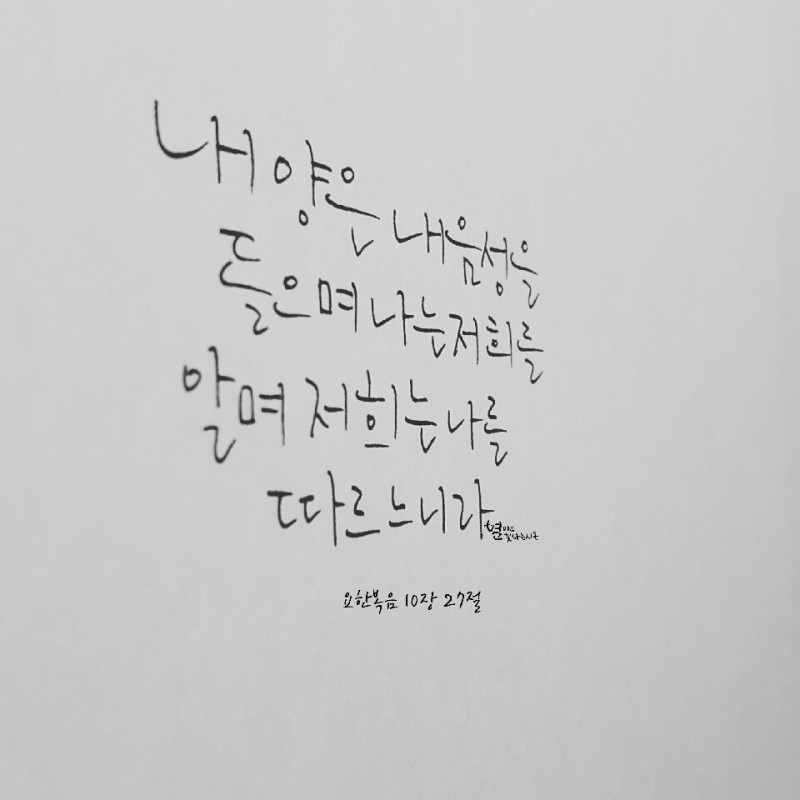 내 양은 내 음성을
들으며 나는 저희를
알며 저희는 나를
따르느니라
요한복음 10장 27절